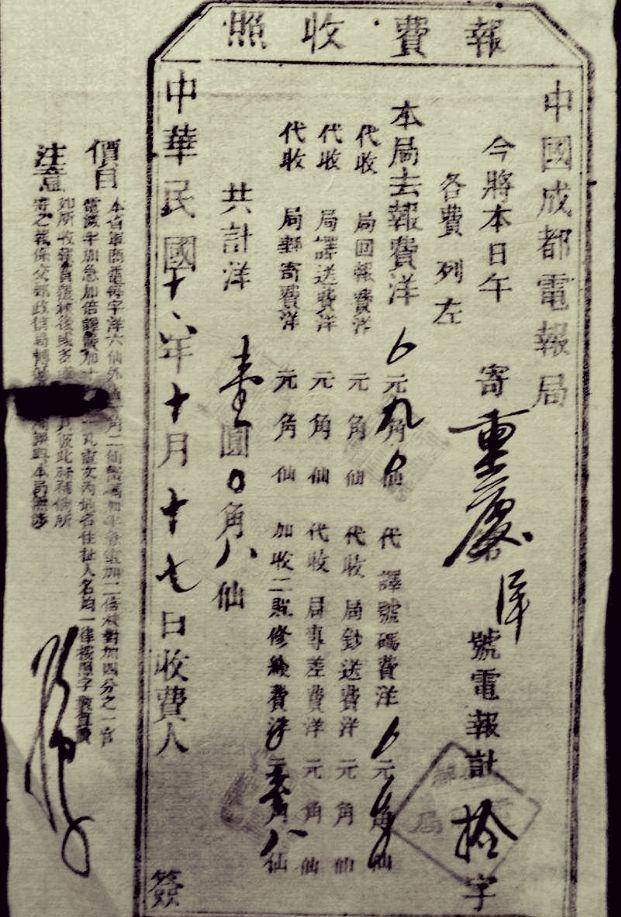 報費收照
中國成都電報局
今將本日午 寄重慶 號電報計拾字
各費列左
本局去報費洋〇元九角〇仙 代譯號碼費洋〇元 角 仙
代收 局回報費洋 元 角 仙 代收 局鈔送費洋 元 角 仙
代收 局譯送費洋 元 角 仙 代收 局專差費洋 元 角 仙
代收 局郵寄費洋 元 角 仙 加收二 修線費洋〇元壹角八仙
共計洋 壹圓〇角八仙
中華民國十六年十月十七日收費人 簽
價目 本省華商電每字洋六仙外 角二仙 加四分之一官
電 半加急加倍譯費加 電文內姓名住址人名均一律按 字
注意 如所收報費 後或多 彼此 局所
寄之報係交郵政信局轉 與本局無涉